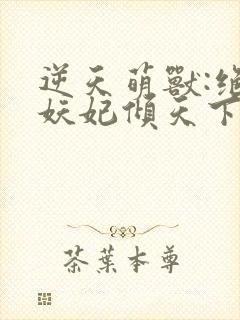 逆天萌獸:絕
妖妃傾天下
茶葉本尊